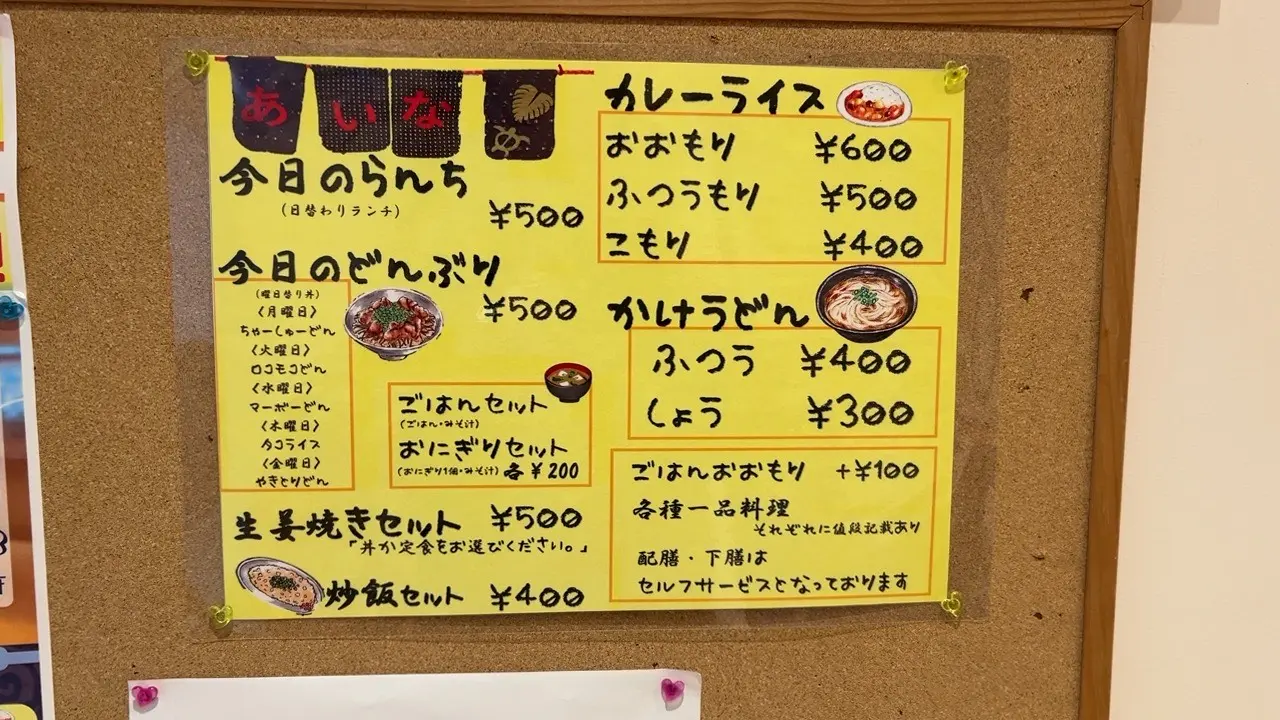 あいな
今日のらんち
(日替わりランチ)
¥500
今日のどんぶり
¥500
(曜日替り丼)
〈月曜日〉
ちゃーしゅーどん
〈火曜日〉
ロコモコどん
〈水曜日〉
マーボーどん
〈木曜日〉
タコライス
〈金曜日〉
やきとりどん
ごはんセット
(ごはん・みそ汁)
おにぎりセット
(おにぎり1個・みそ汁)各¥200
生姜焼きセット ¥500
「丼か定食をお選びください。」
炒飯セット ¥400
カレーライス
おおもり ¥600
ふつうもり ¥500
こもり ¥400
かけうどん
ふつう ¥400
しょう ¥300
ごはんおおもり +¥100
各種一品料理
それぞれに値段記載あり
配膳・下膳は
セルフサービスとなっております